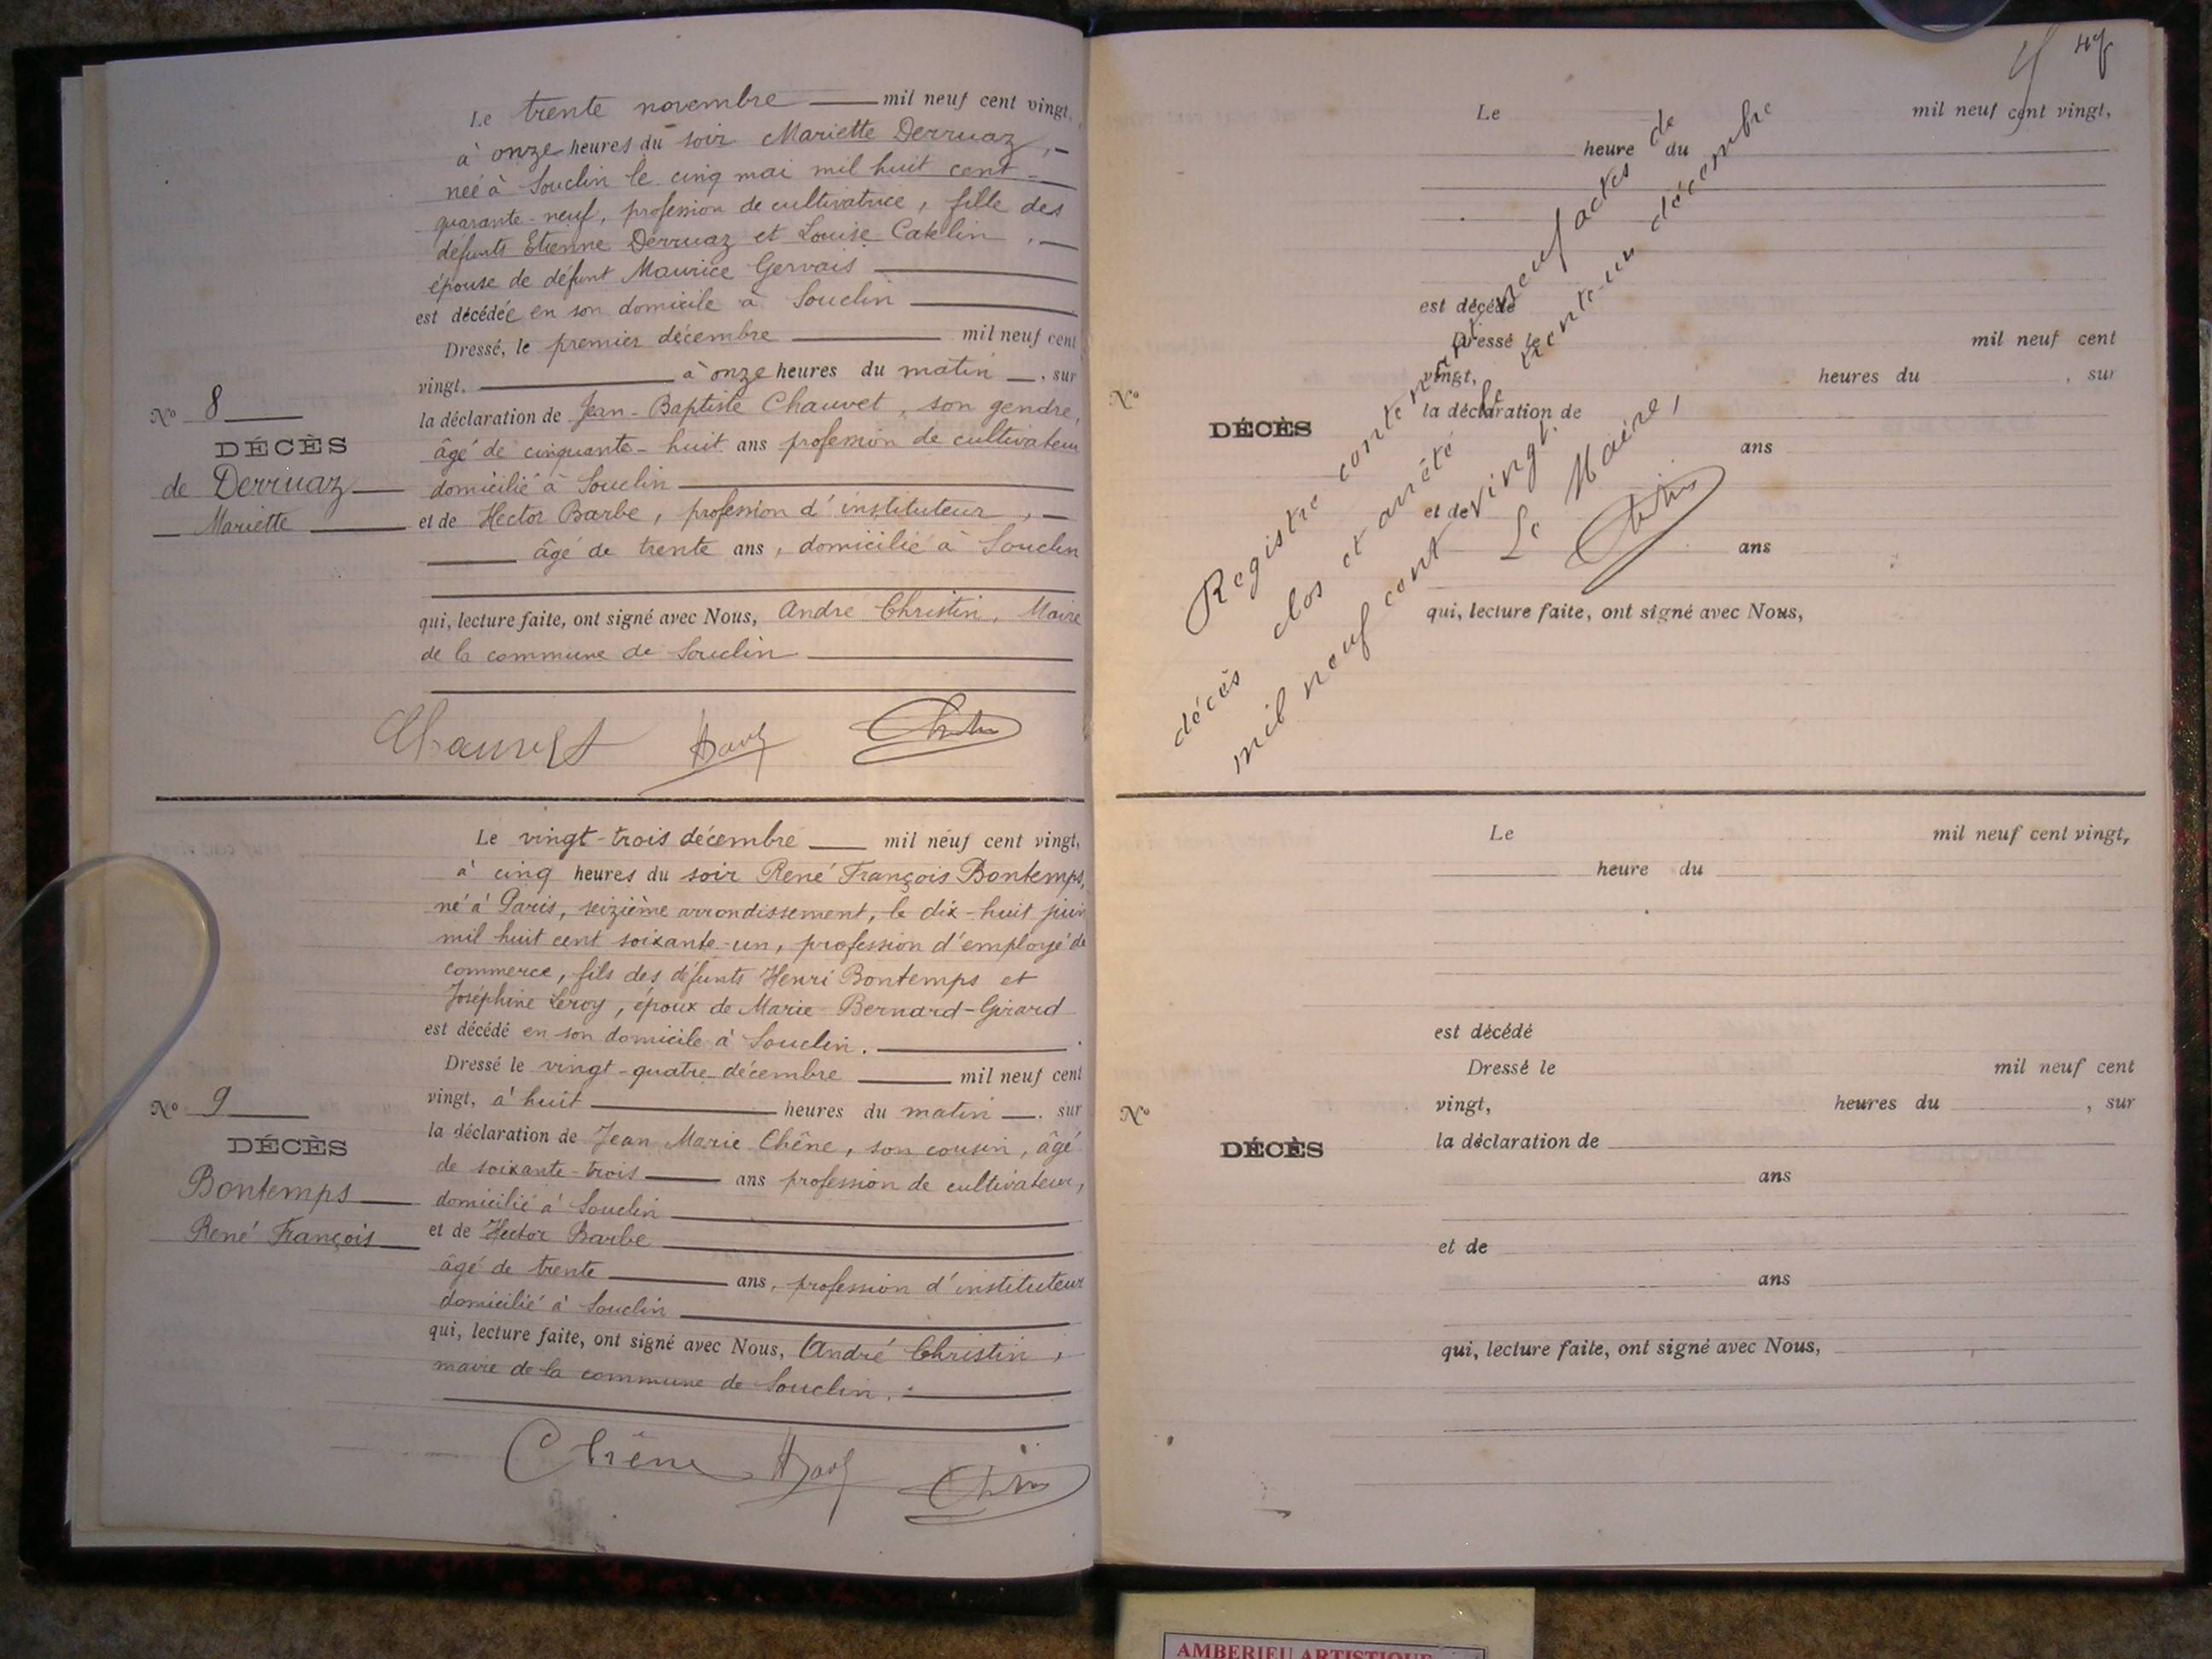 Le trente novembre mil neuf cent vingt,
à onze heures du soir Mariette Derruaz,
née à Souclin le cinq mai mil huit cent
quarante-neuf, profession de cultivatrice, fille des
défunts Etienne Derruaz et Louise Catelin,
épouse de défunt Maurice Gervais
est décédée en son domicile à Souclin
Dressé, le premier décembre mil neuf cent
vingt, à onze heures du matin, sur
la déclaration de Jean-Baptiste Chauvet, son gendre,
âgé de cinquante-huit ans profession de cultivateur
domicilié à Souclin
et de Hector Barbe, profession d'instituteur,
âgé de trente ans, domicilié à Souclin
qui, lecture faite, ont signé avec Nous, André Christin, Maire
de la commune de Souclin
N° 8
DÉCÈS
de Derruaz
Mariette
Chauvet
Le vingt-trois décembre mil neuf cent vingt,
à cinq heures du soir René François Bontemps,
né à Paris, seizième arrondissement, le dix-huit juin
mil huit cent soixante-un, profession d'employé de
commerce, fils des défunts Henri Bontemps et
Joséphine Leroy, époux de Marie Bernard-Girard
est décédé en son domicile à Souclin.
Dressé le vingt-quatre décembre mil neuf cent
vingt, à huit heures du matin, sur
la déclaration de Jean Marie Chêne, son cousin, âgé
de soixante-trois ans profession de cultivateur,
domicilié à Souclin
et de Hector Barbe
âgé de trente ans, profession d'instituteur
domicilié à Souclin
qui, lecture faite, ont signé avec Nous, André Christin,
maire de la commune de Souclin.
N° 9
DÉCÈS
Bontemps
René François
Chêne
Le mil neuf cent vingt,
heure du
est décédé
Dressé le mil neuf cent
vingt, heures du , sur
la déclaration de
ans
et de
ans
qui, lecture faite, ont signé avec Nous,
N°
DÉCÈS
Registre contenant neuf actes de
décès clos et arrêté le trente-un décembre
mil neuf cent vingt.
Le Maire,
Le mil neuf cent vingt,
heure du
est décédé
Dressé le mil neuf cent
vingt, heures du , sur
la déclaration de
ans
et de
ans
qui, lecture faite, ont signé avec Nous,
N°
DÉCÈS
AMBERIEU ARTISTIQUE